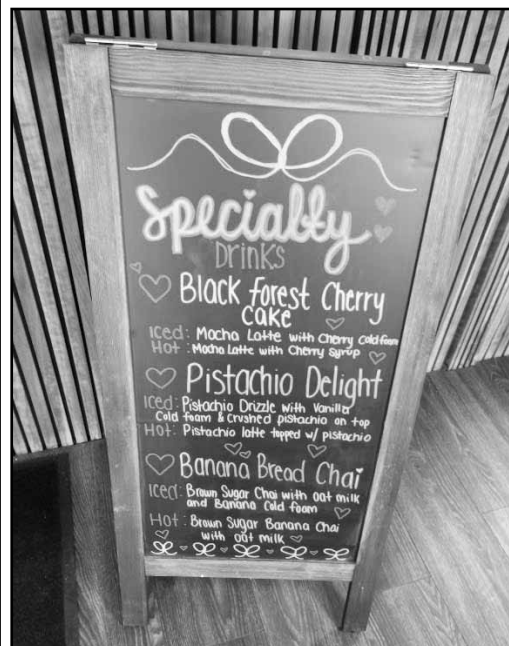 Specialty
Drinks
Black Forest Cherry
Cake
Iced: Mocha Latte with Cherry Cold foam
Hot: Mocha Latte with Cherry Syrup
Pistachio Delight
Iced: Pistachio Drizzle with Vanilla
Cold foam & Crushed pistachio on top
Hot: Pistachio latte topped w/ pistachio
Banana Bread Chai
Iced: Brown Sugar Chai with oat milk
and Banana Cold foam
Hot: Brown Sugar Banana Chai
with oat milk